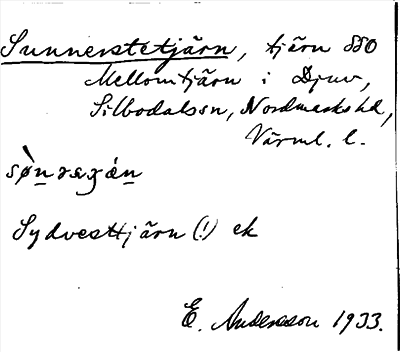 Sunnerstetjärn, tjärn SSO
Mellomtjärn i Djuv,
Silbodalssn, Nordmarks hd,
Värml. l.
sø̀n̠ərəɟǽn̠
Sydvesttjärn (!) ek
E. Andersson 1933.